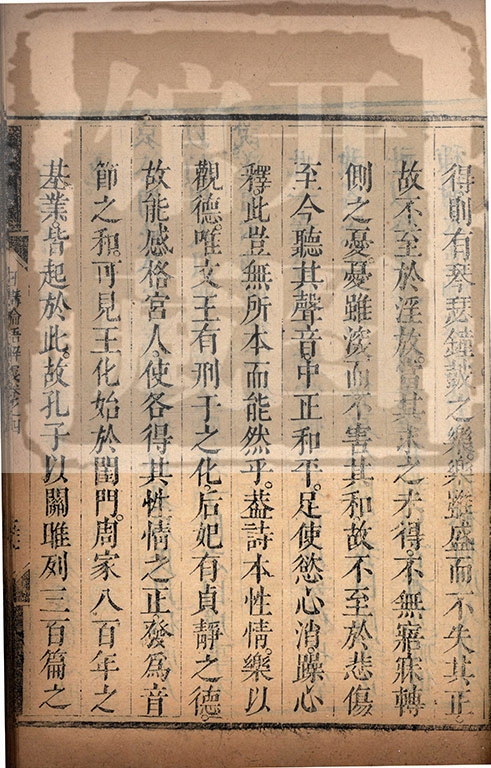 得則有琴瑟鐘鼓之樂樂雖盛而不失其正。
故不至於淫放。當其求之未得。不無寤寐轉
側之憂。憂雖深而不害其和故不至於悲傷
至今聽其聲音中正和平。足使慾心消。躁心
釋。此豈無所本而能然乎。葢詩本性情。樂以
觀德。唯文王有刑于之化后妃有貞靜之德。
故能感格宮人。使各得其性情之正發為音
節之和。可見王化始於閨門。周家八百年之
基業皆起於此。故孔子以關雎列三百篇之
日講論語解義卷之四